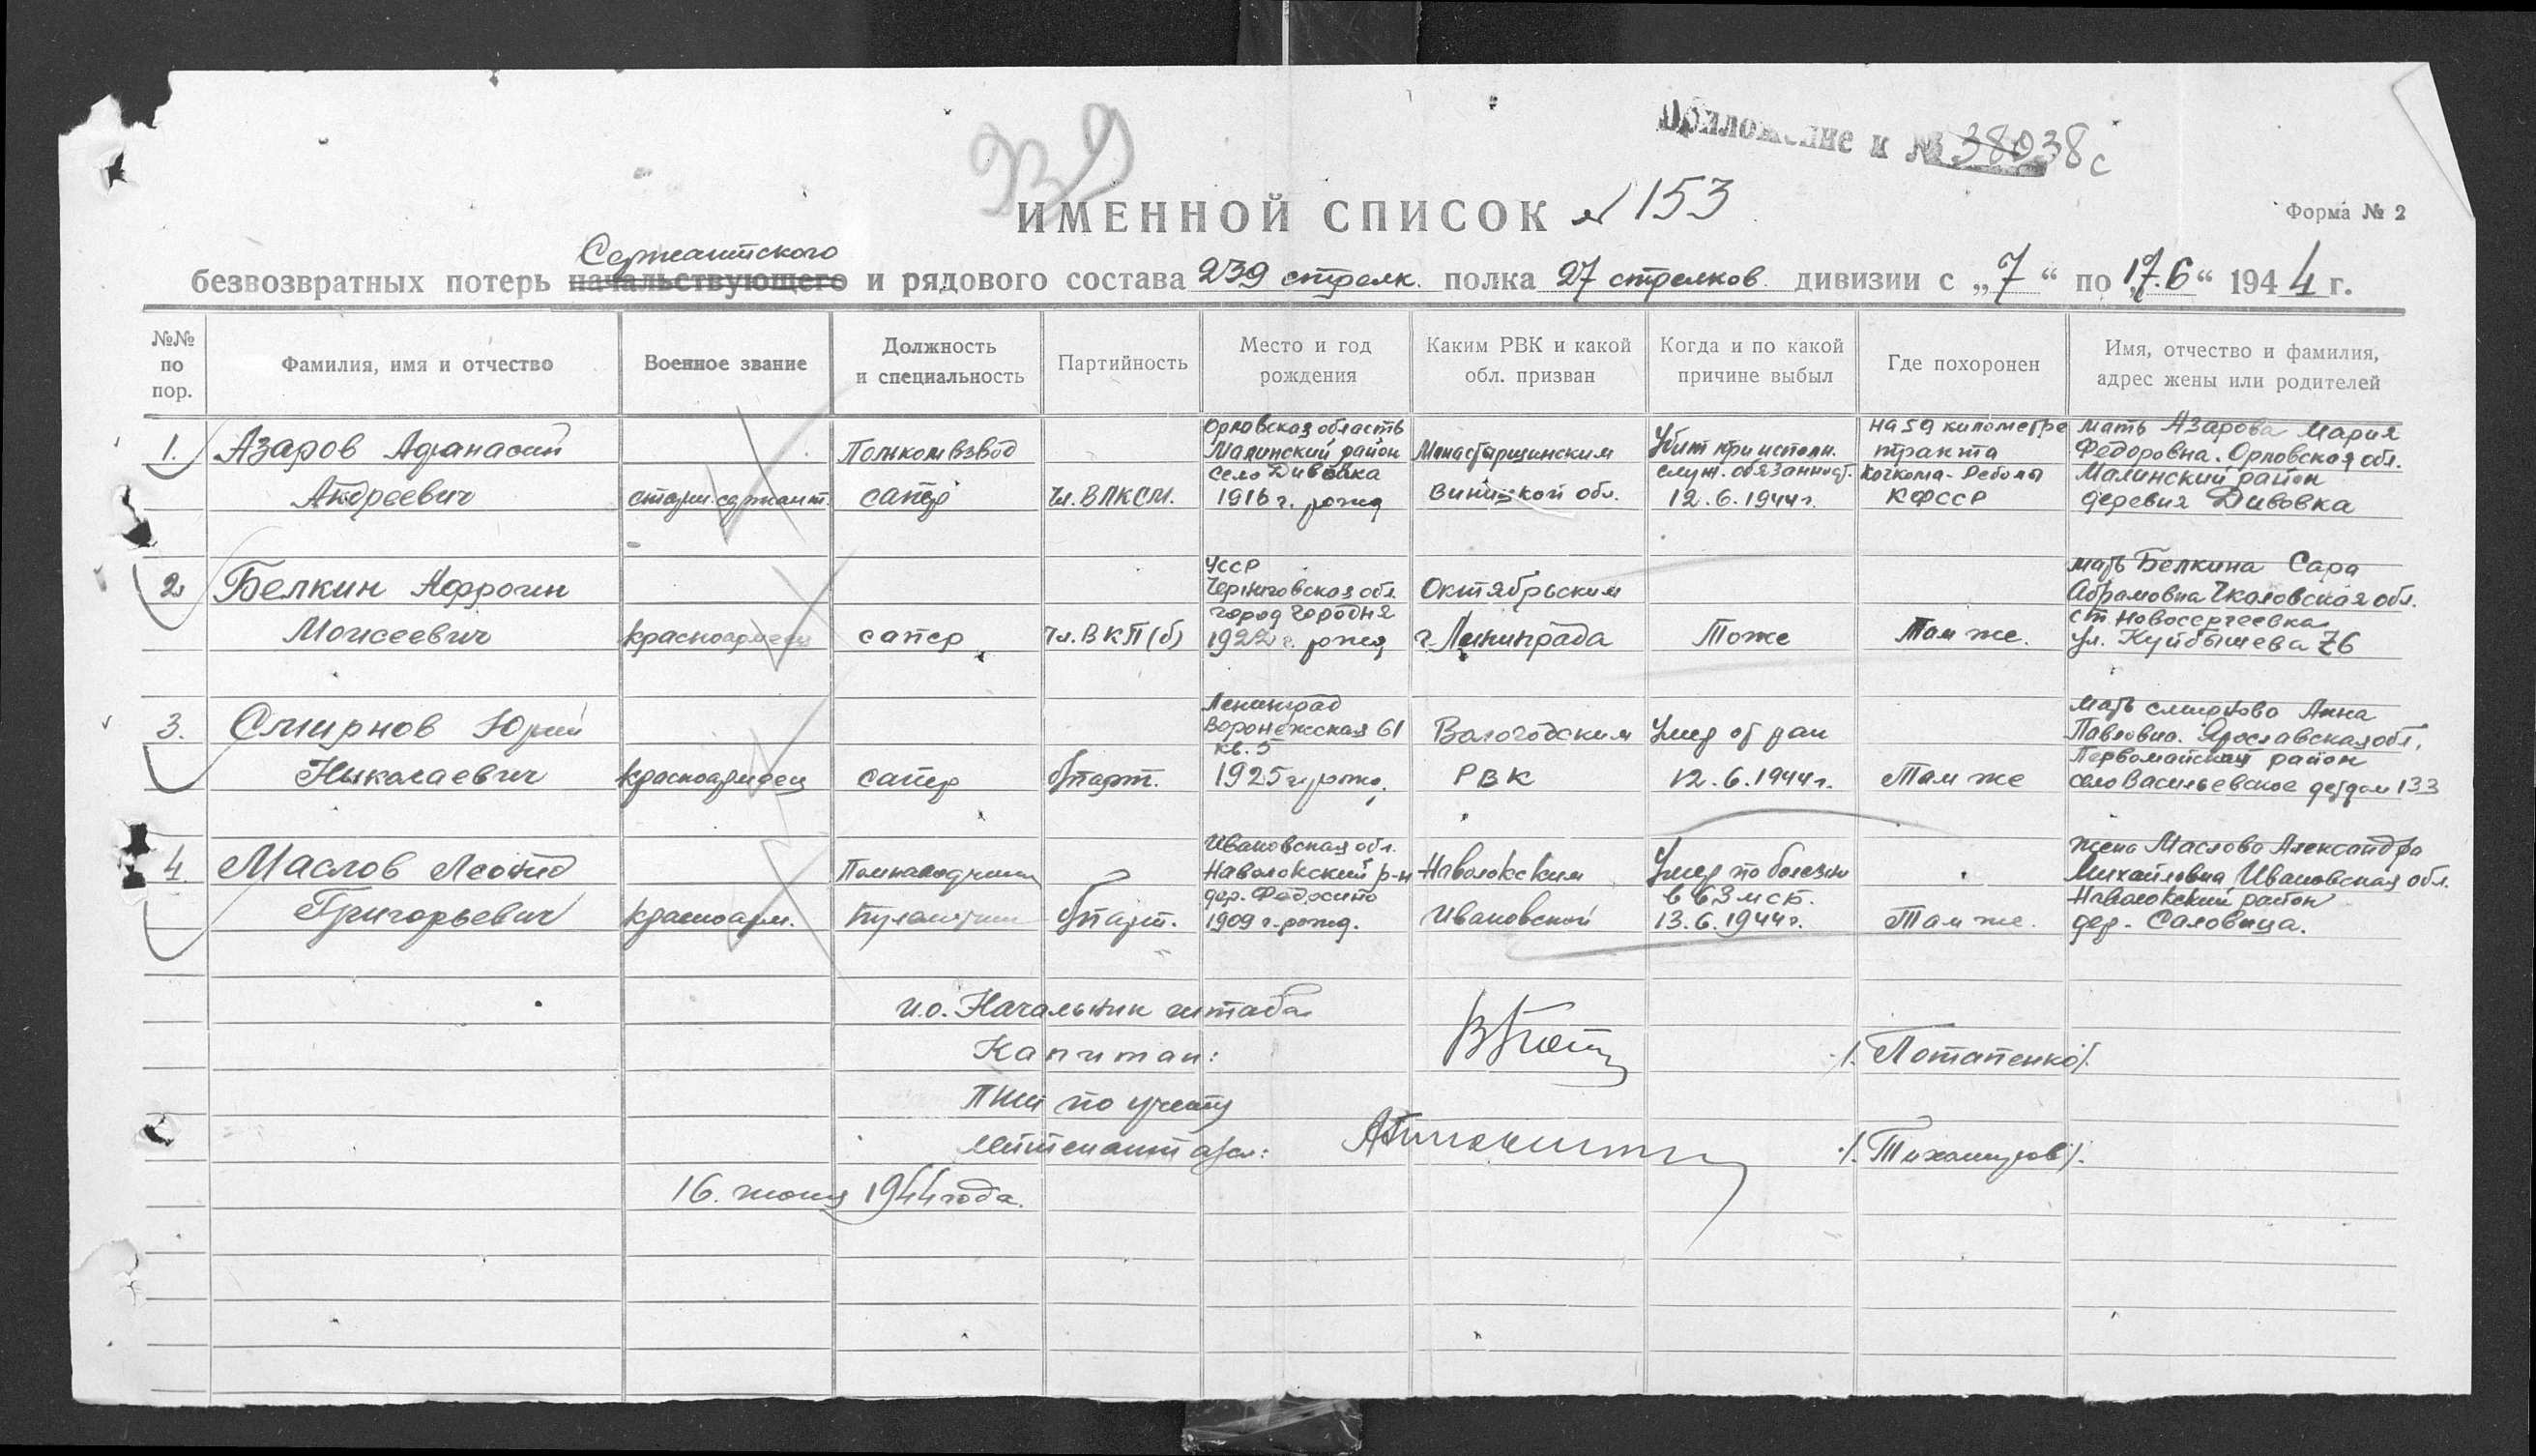 39
Приложение к № 38038с
ИМЕННОЙ СПИСОК № 153
Форма № 2
Сержантского
безвозвратных потерь начальствующего и рядового состава 239 стрелк. полка 27 стрелков. дивизии с „7“ по „17.6“ 1944 г.
№№ по пор.
Фамилия, имя и отчество
Военное звание
Должность и специальность
Партийность
Место и год рождения
Каким РВК и какой обл. призван
Когда и по какой причине выбыл
Где похоронен
Имя, отчество и фамилия, адрес жены или родителей
1.
Азаров Афанасий
Андреевич
старш. сержант.
Помкомвзвод
сапер
Чл. ВЛКСМ.
Орловская область
Малинский район
село Дивовка
1916 г. рожд
Монастырщинским
Виницкой обл.
Убит при исполн.
служ. обязанност.
12.6.1944 г.
на 59 километре
тракта
Кочкома-Реболы
КФССР
мать Азарова Мария
Федоровна. Орловская обл.
Малинский район
деревня Дивовка
2
Белкин
Моисеевич
красноармеец
сапер
Чл. ВКП(б)
УССР
Черниговская обл.
город Городня
1922 г. рожд
Октябрьским
г. Ленинграда
Тоже
Там же.
мать Белкина Сара
Абрамовна Чкаловская обл.
ст Новосергеевка
ул. Куйбышева 76
3.
Смирнов Юрий
Николаевич
красноармеец
сапер
б/парт.
Ленинград
Воронежская 61
кв. 5
1925 г. рожд.
Вологодским
РВК
Умер от ран
12.6.1944 г.
Там же
мать Смирнова Анна
Павловна. Ярославская обл.
Первомайский район
село Васильевское детдом 133
4.
Маслов Леонид
Григорьевич
красноарм.
Помнаводчика
б/парт.
Ивановская обл.
Наволокский р-н
дер. Федосино
1909 г. рожд.
Наволокским
Ивановской
Умер по болезни
в 63 мсб.
13.6.1944 г.
Там же.
жена Маслова Александра
Михайловна Ивановская обл.
Наволокский район
дер.
и.о. Начальник штаба
Капитан:
/. Потапенко/.
ПНШ по учету
лейтенант а/сл:
/. Тихомиров/.
16. июня 1944 года.